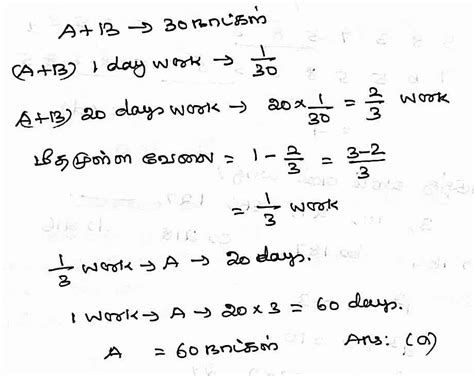 A+B → 30 நாட்கள்
(A+B) 1 day work → 1/30
(A+B) 20 days work → 20 × 1/30 = 2/3 work
மீதமுள்ள வேலை = 1 - 2/3 = 3-2/3
= 1/3 work
1/3 work → A → 20 days.
1 work → A → 20 × 3 = 60 days.
A = 60 நாட்கள் Ans: (a)